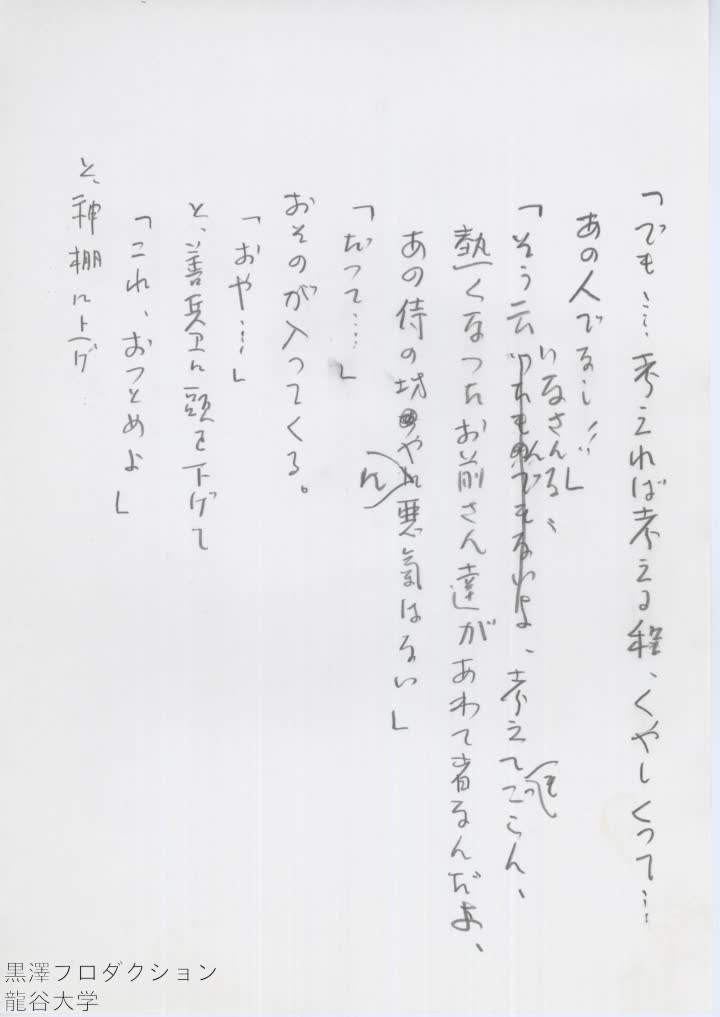 「でも……考えれば考える程、くやしくって……
あの人でなし…!!」
「そう云いなさんな、考えてごらん、
熱くなったお前さん達があわて者なんだよ、
あの侍の坊やに悪氣はない」
「だって……」
おそのが入ってくる。
「おや…」
と、善兵衛に頭を下げて
「これ、おつとめよ」
と、神棚に上げ
黒澤プロダクション
龍谷大学